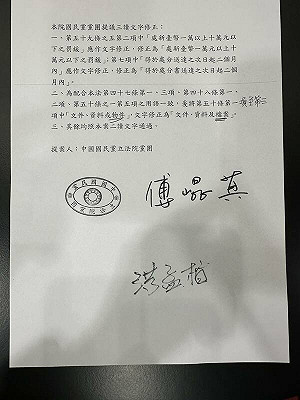 本院國民黨黨團提議三讀文字修正：
一、第五十九條之五第二項中「處新臺幣一萬以上十萬元以
下之罰鍰」應作文字修正，修正為「處新臺幣一萬元以上十
萬元以下之罰鍰」；第七項中「得於處分送達之次日起二個月
內」應作文字修正，修正為「得於處分書送達之次日起二個
月內」。
二、為配合本法第四十七條第一、三項、第四十八條第一、
二項、第五十條之一第五項之用語一致，爰將第五十條第一項至第三
項中「文件、資料或物件」文字修正為「文件、資料及檔案」。
三、其餘均照本案二讀文字通過。
提案人：中國國民黨立法院黨團
傅崐萁
洪孟楷